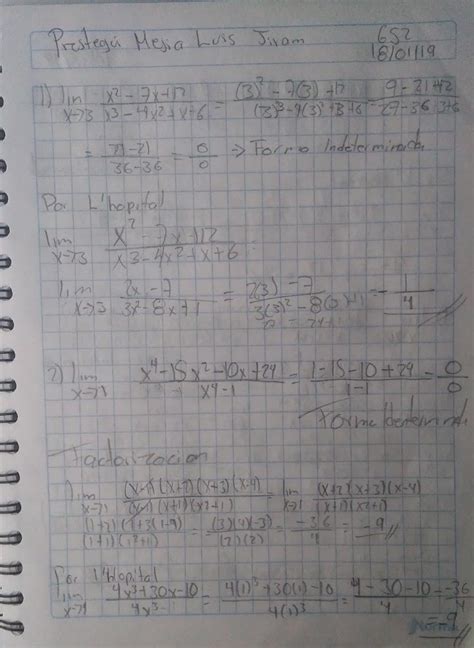 Mejia Luis Jiram 652
18/01/19
1) lim x→3 x² - 7x + 12 / x³ - 4x² + x + 6 = (3)² - 7(3) + 12 / (3)³ - 4(3)² + 3 + 6 = 9 - 21 + 12 / 27 - 36 + 3 + 6
= 21 - 21 / 36 - 36 = 0/0 → Forma Indeterminada
Por L'hopital
lim x→3 x² - 7x + 12 / x3 - 4x² + x + 6
lim x→3 2x - 7 / 3x² - 8x + 1 = 2(3) - 7 / 3(3)² - 8(3) + 1 = - 1/4
2) lim x→1 x⁴ - 15x² - 10x + 24 / x4 - 1 = 1 - 15 - 10 + 24 / 1 - 1 = 0/0
Forma
Factorizacion
lim x→1 (x-1)(x+2)(x+3)(x-4) / (x-1)(x+1)(x²+1) = lim x→1 (x+2)(x+3)(x-4) / (x+1)(x²+1)
(1+2)(1+3)(1-4) / (1+1)(1²+1) = (3)(4)(-3) / (2)(2) = -36/4 = -9
Por L'Hopital
lim x→1 4x³ + 30x - 10 / 4x³ = 4(1)³ + 30(1) - 10 / 4(1)³ = 4 - 30 - 10 / 4 = -36/4
= -9
Norma